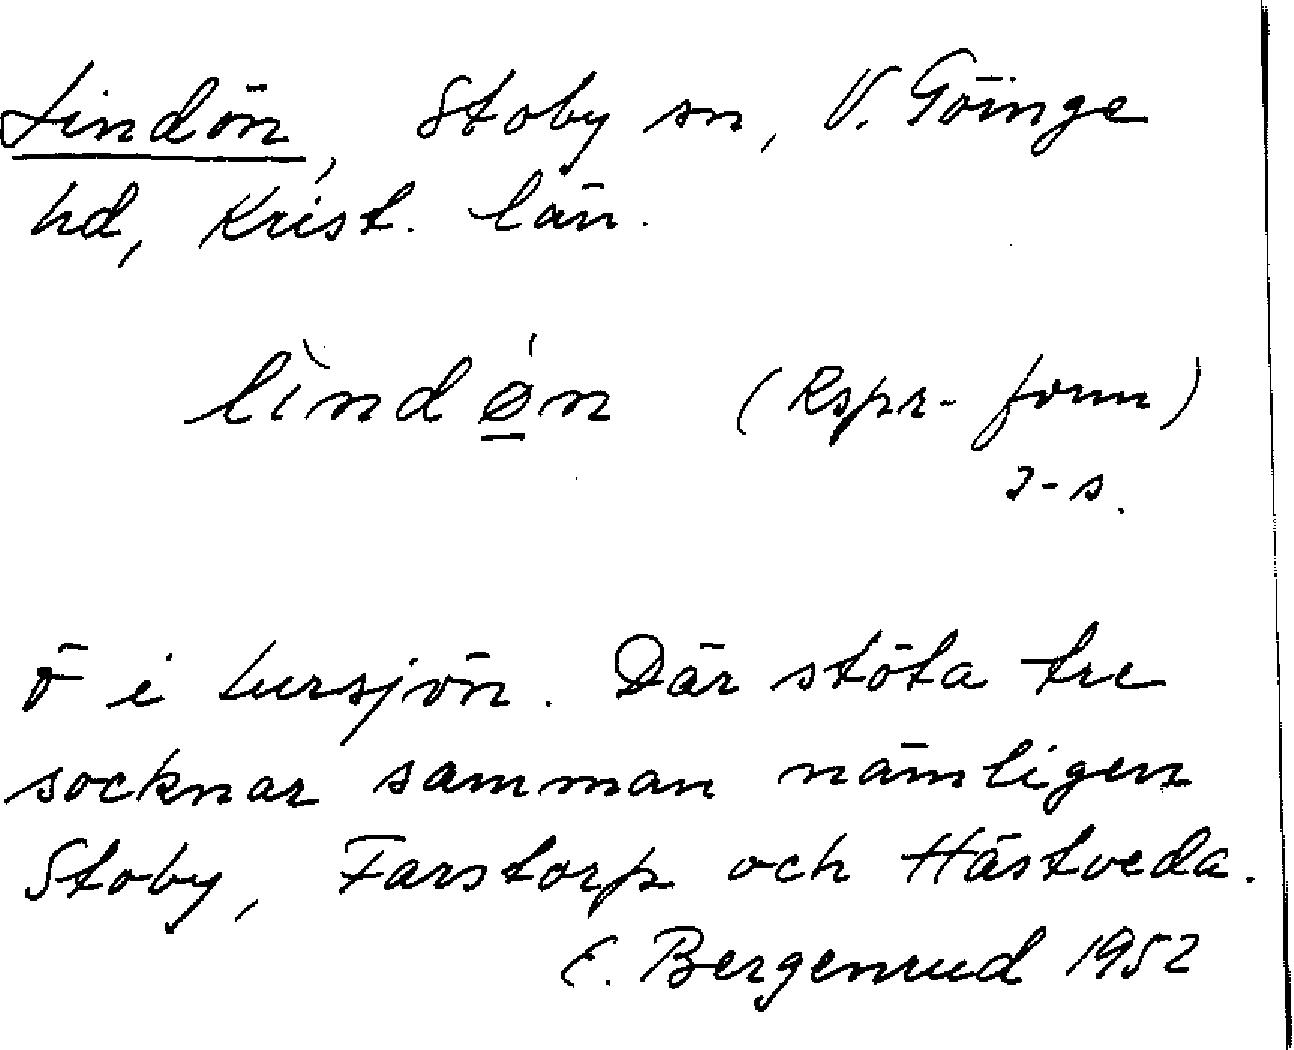 Lindön, Stoby sn, V. Göinge
hd, Krist. län.
lìndǿn (Rspr-form)
I-s.
Ö i Lursjön. Där stöta tre
socknar samman nämligen
Stoby, Farstorp och Hästveda.
E. Bergenrud 1952